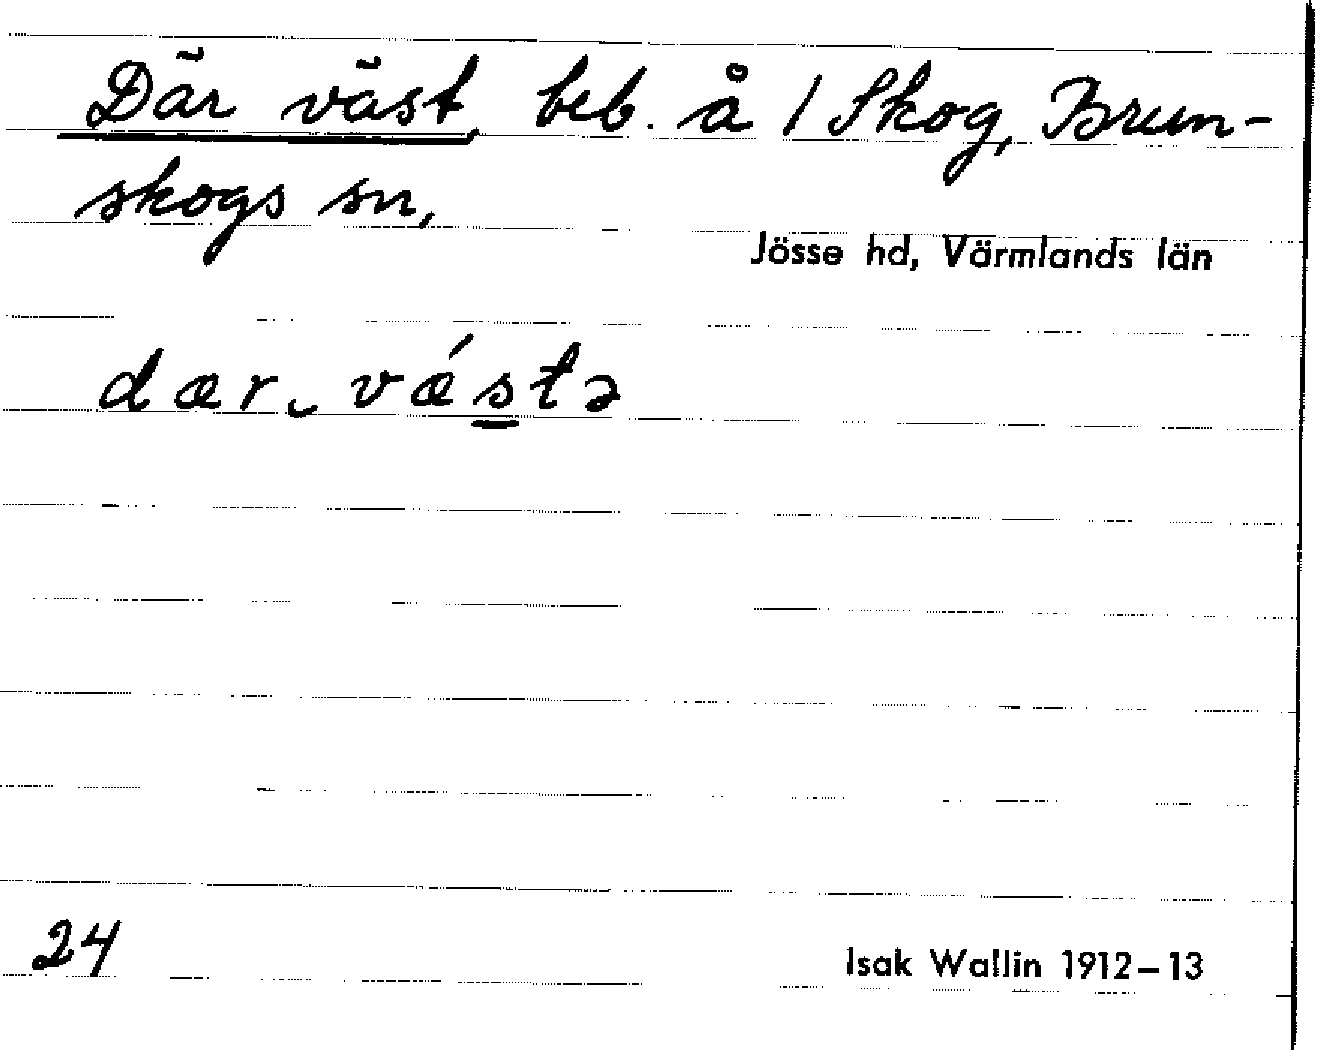 Där väst, beb. å 1 Skog, Brun-
skogs sn,
Jösse hd, Värmlands län
dær‿vǽstə
24
Isak Wallin 1912–13